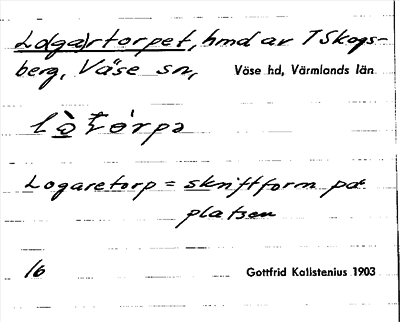 Lo(ga)rtorpet, hmd av T Skogs-
berg, Väse sn, Väse hd, Värmlands län
Logaretorp = skriftform på
platsen
16 Gottfrid Kallstenius 1903